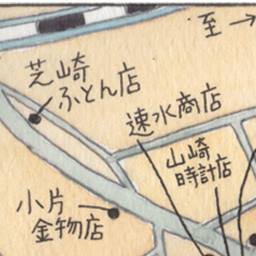 至→
芝崎
ふとん店
速水商店
山崎
時計店
小片
金物店